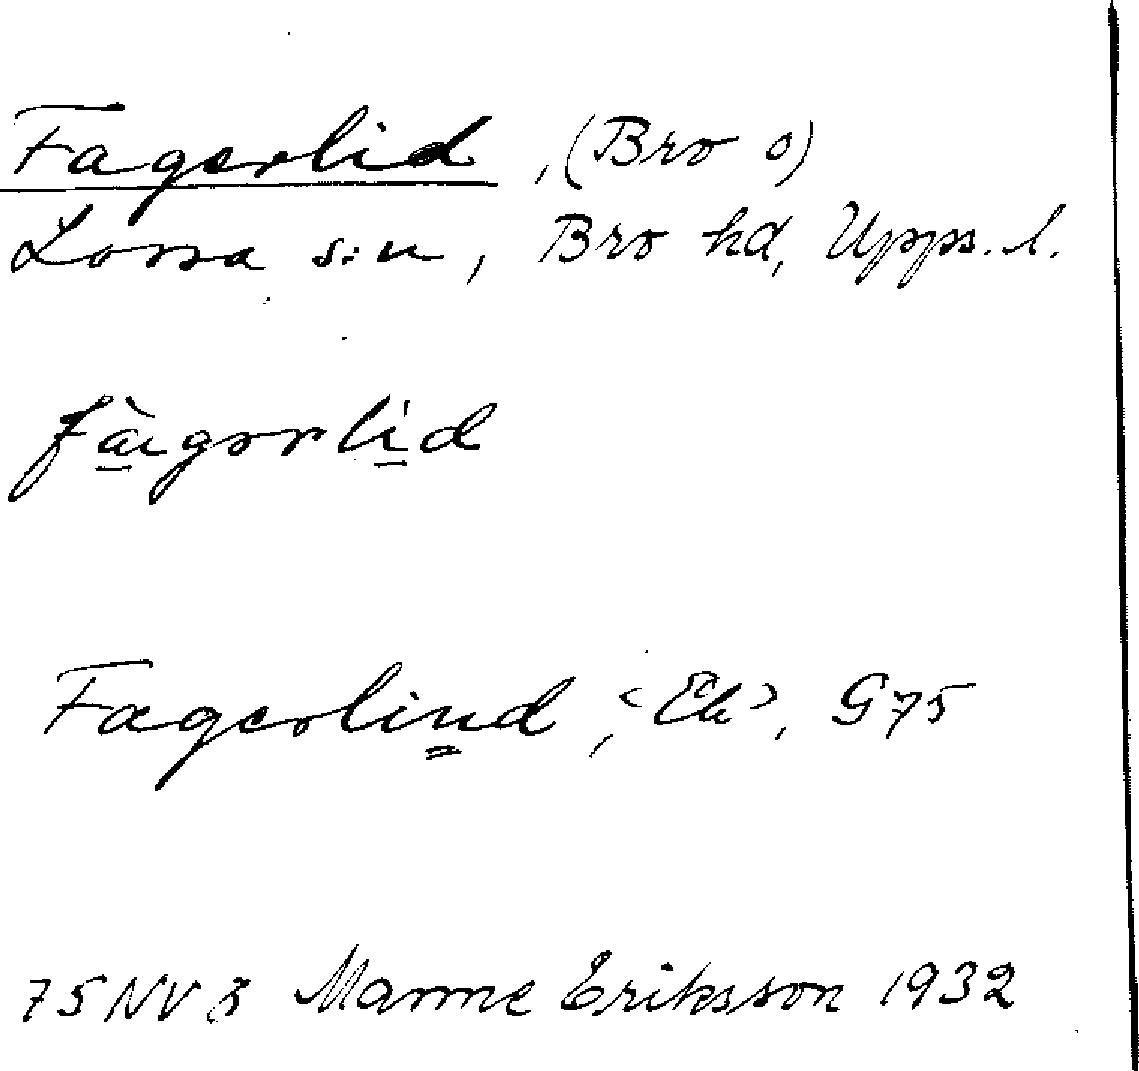 Fagerlid, (Bro o)
Lossa s:n, Bro hd, Upps. l.
fàgərlid
Fagerlind, <Ek>, G75
75NV Manne Eriksson 1932